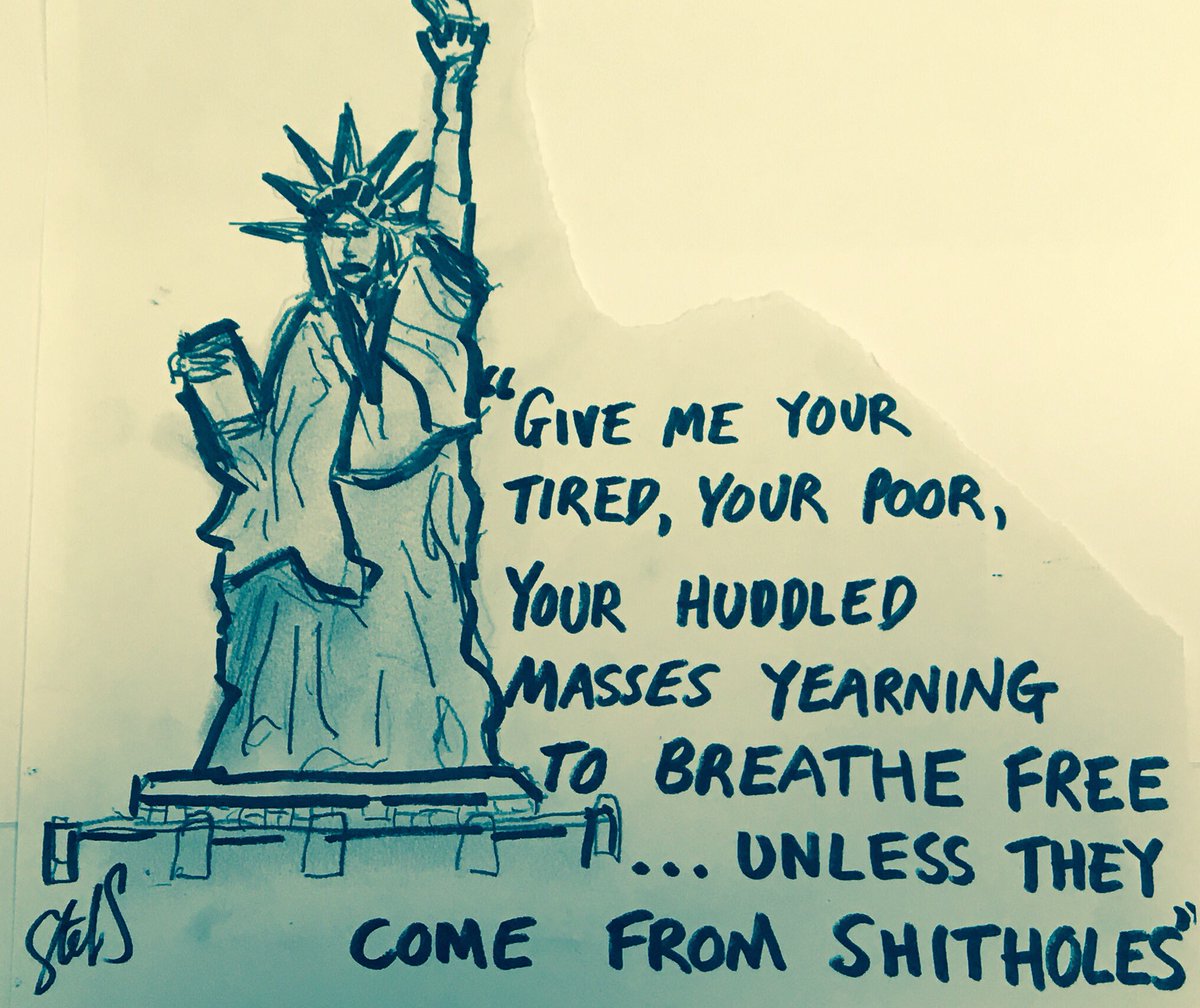 "GIVE ME YOUR
TIRED, YOUR POOR,
YOUR HUDDLED
MASSES YEARNING
TO BREATHE FREE
...UNLESS THEY
COME FROM SHITHOLES"